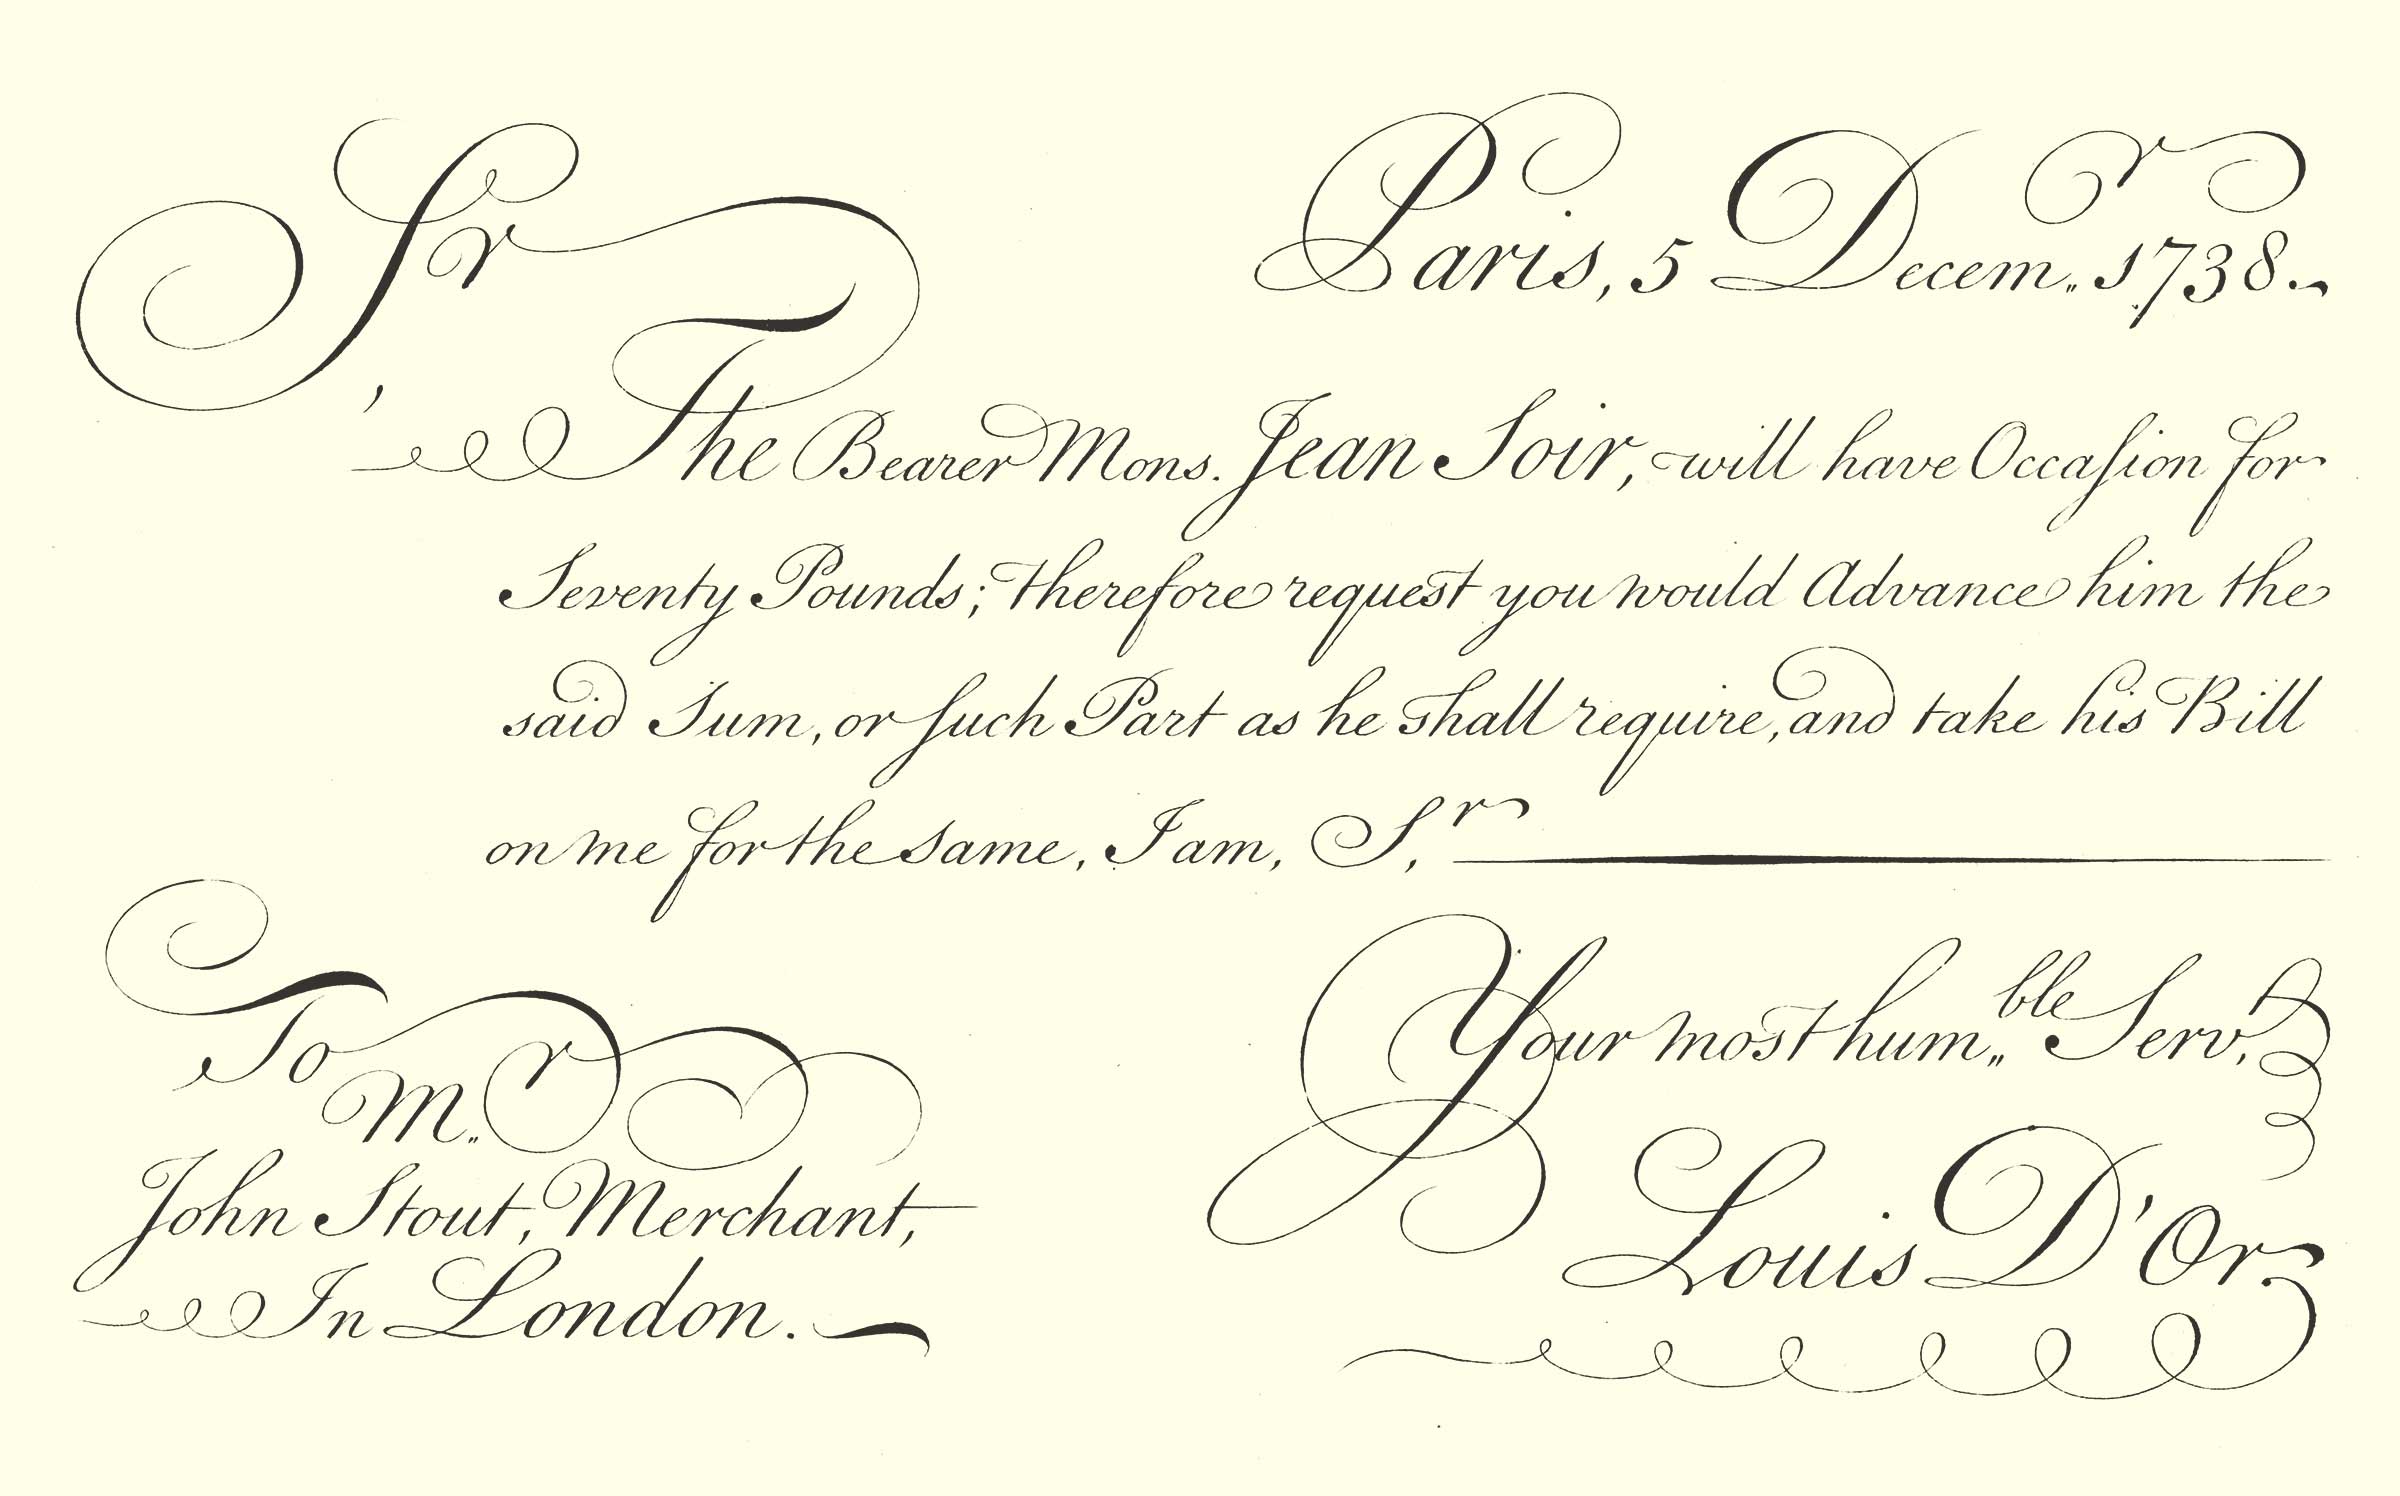 Paris, 5 Decem.ʳ 1738.
Sʳ,
The Bearer Mons. Jean Soir, will have Occaſion for
Seventy Pounds; therefore request you would Advance him the
said Sum, or ſuch Part as he shall require, and take his Bill
on me for the same, I am, Sʳ,
Your most hum.ᵇˡᵉ Serv,ᵗ
Louis D'Or
To
M.ʳ
John Stout, Merchant,
In London.